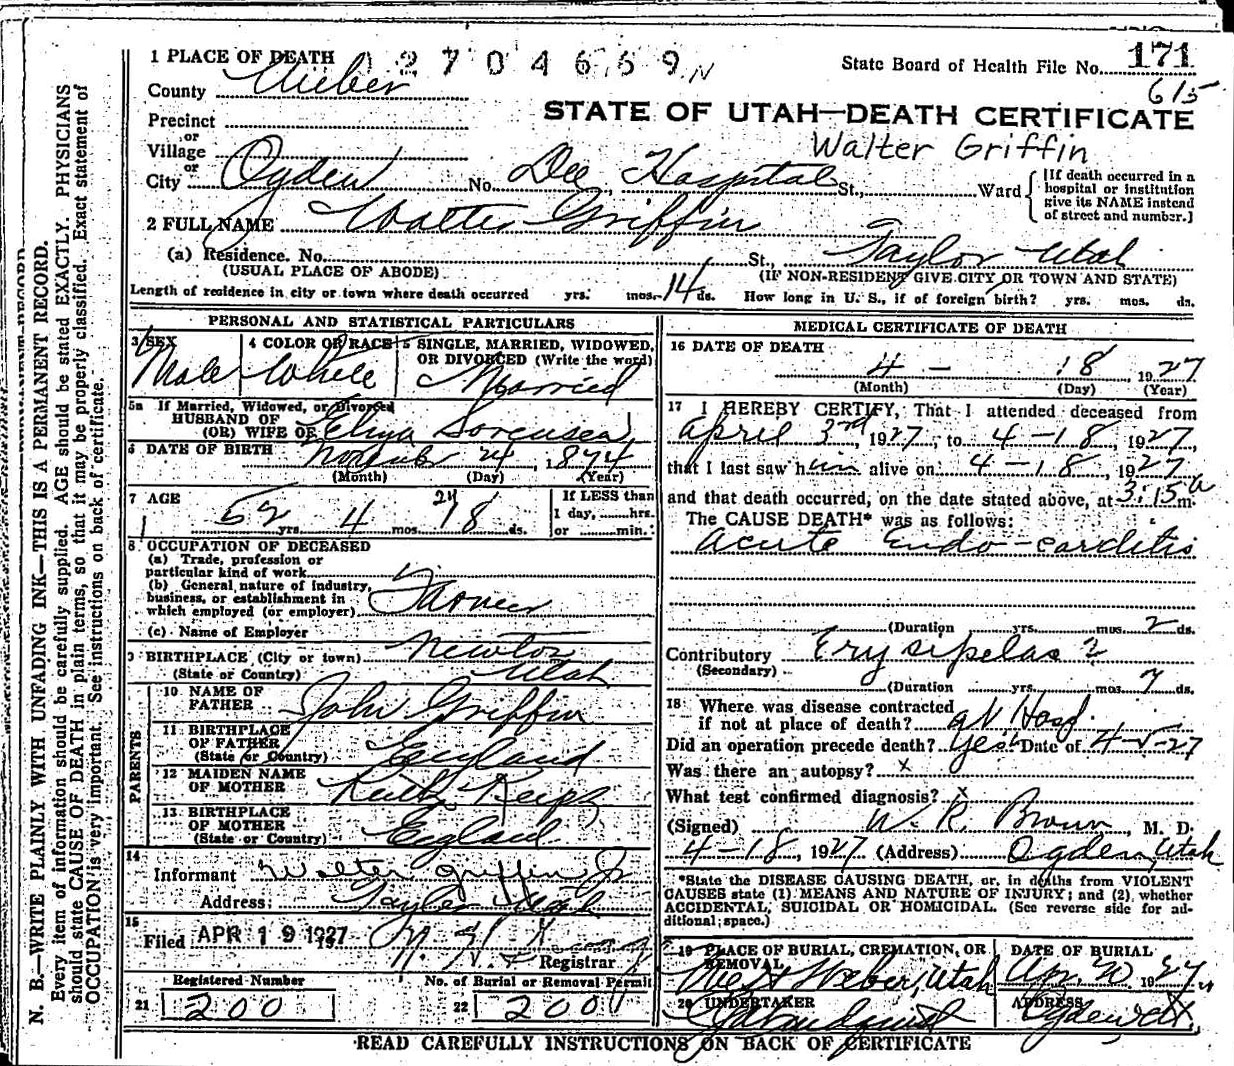 1 PLACE OF DEATH 0 2 7 0 4 6 6 9 N
State Board of Health File No. 171
615
County Weber
STATE OF UTAH—DEATH CERTIFICATE
Precinct
or
Village
Walter Griffin
or
City Ogden No. Dee Hospital St., Ward
[If death occurred in a hospital or institution give its NAME instead of street and number.]
2 FULL NAME Walter Griffin
(a) Residence. No. St., Taylor Utah
(USUAL PLACE OF ABODE) (IF NON-RESIDENT GIVE CITY OR TOWN AND STATE)
Length of residence in city or town where death occurred yrs. mos. 14 ds. How long in U. S., if of foreign birth? yrs. mos. ds.
PERSONAL AND STATISTICAL PARTICULARS
3 SEX
Male
4 COLOR OR RACE
White
5 SINGLE, MARRIED, WIDOWED,
OR DIVORCED (Write the word)
Married
5a If Married, Widowed, or Divorced
HUSBAND OF
(OR) WIFE OF Sorensen
6 DATE OF BIRTH November 24, 1874
(Month) (Day) (Year)
7 AGE
52 yrs. 4 mos. 24 18 ds.
If LESS than
1 day, hrs.
or min.
8 OCCUPATION OF DECEASED
(a) Trade, profession or
particular kind of work
(b) General nature of industry,
business, or establishment in
which employed (or employer)
(c) Name of Employer
9 BIRTHPLACE (City or town) Newton
(State or Country) Utah
PARENTS
10 NAME OF
FATHER John Griffin
11 BIRTHPLACE
OF FATHER
(State or Country) England
12 MAIDEN NAME
OF MOTHER Ruth
13 BIRTHPLACE
OF MOTHER
(State or Country) England
14
Informant Walter Griffin Jr
Address: Taylor Utah
15
Filed APR 19 1927
Registrar
Registered Number
21 200
No. of Burial or Removal Permit
22 200
MEDICAL CERTIFICATE OF DEATH
16 DATE OF DEATH
4 - 18, 1927
(Month) (Day) (Year)
17 I HEREBY CERTIFY, That I attended deceased from
April 3rd, 1927, to 4-18, 1927,
that I last saw him alive on 4-18, 1927
and that death occurred, on the date stated above, at 3:15 a m.
The CAUSE DEATH* was as follows:
Acute Endo-carditis
(Duration yrs. mos. 2 ds.
Contributory Erysipelas ?
(Secondary)
(Duration yrs. mos. 7 ds.
18 Where was disease contracted
if not at place of death? at Hosp.
Did an operation precede death? Yes Date of 4-5-27
Was there an autopsy? x
What test confirmed diagnosis? x
(Signed) W. R. Brown, M. D.
4-18, 1927 (Address) Ogden, Utah
*State the DISEASE CAUSING DEATH, or, in deaths from VIOLENT
CAUSES state (1) MEANS AND NATURE OF INJURY; and (2) whether
ACCIDENTAL, SUICIDAL OR HOMICIDAL. (See reverse side for ad-
ditional space.)
19 PLACE OF BURIAL, CREMATION, OR
REMOVAL
West Weber, Utah
DATE OF BURIAL
Apr. 20 1927
20 UNDERTAKER
ADDRESS
Ogden
READ CAREFULLY INSTRUCTIONS ON BACK OF CERTIFICATE
N. B.—WRITE PLAINLY WITH UNFADING INK—THIS IS A PERMANENT RECORD.
Every item of information should be carefully supplied. AGE should be stated EXACTLY. PHYSICIANS
should state CAUSE OF DEATH in plain terms, so that it may be properly classified. Exact statement of
OCCUPATION is very important. See instructions on back of certificate.